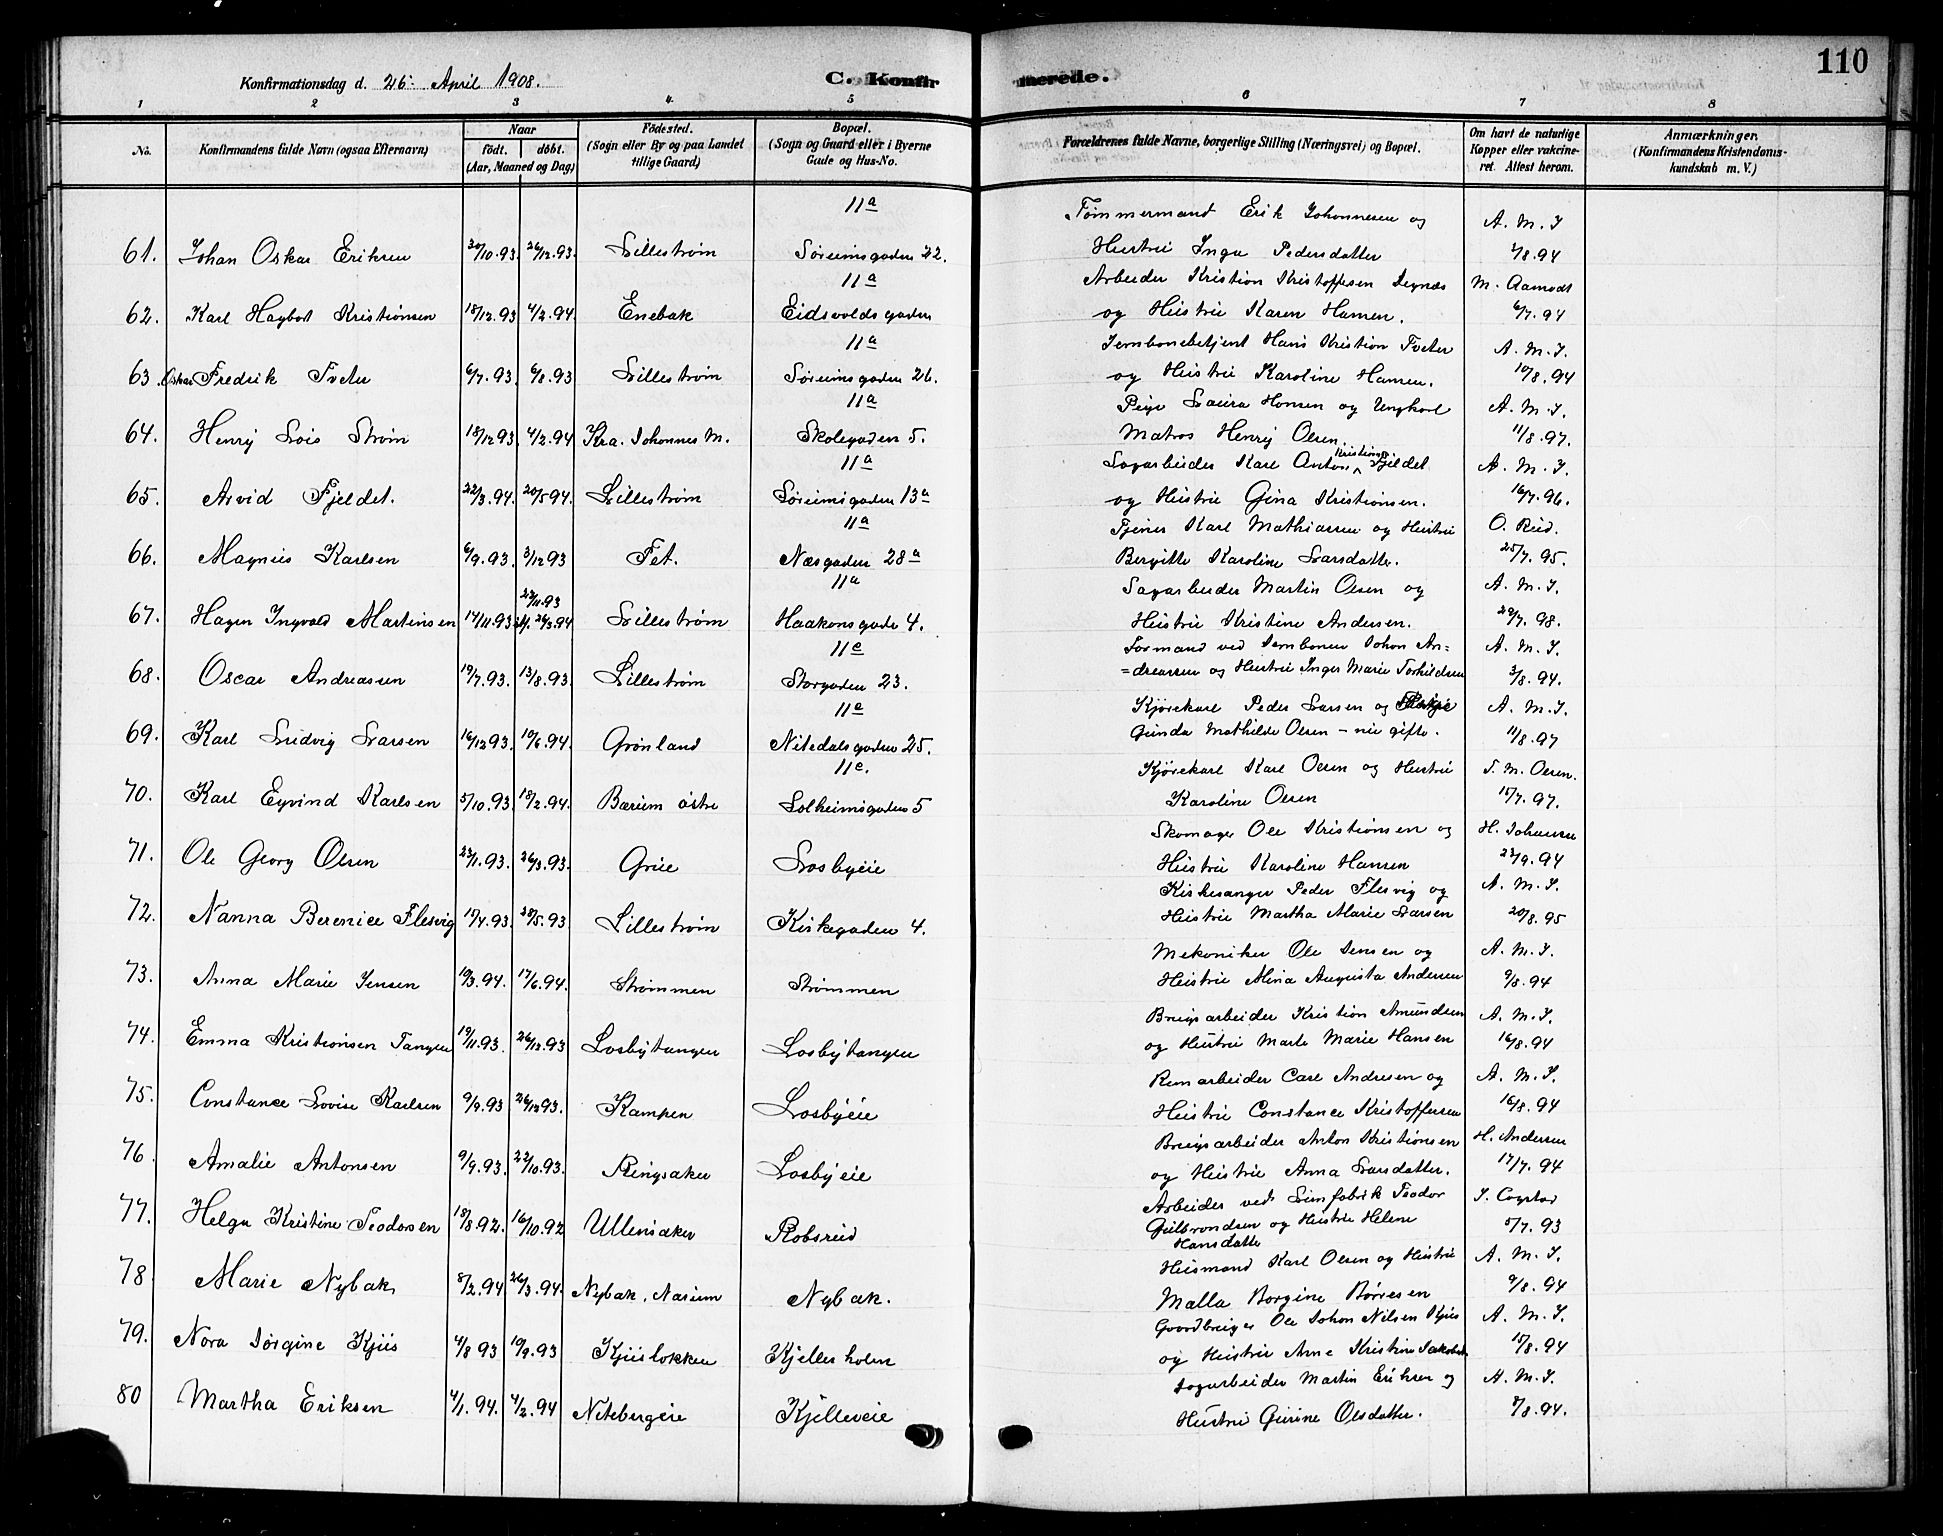 110
Konfirmationsdag d. 26: April 1908.
C. Konfirmerede.
1 2 3 4. 5 6 7 8
No. Konfirmandens fulde Navn (ogsaa Efternavn) Naar født. døbt. (Aar, Maaned og Dag) Fødested. (Sogn eller By og paa Landet tillige Gaard) Bopæl. (Sogn og Gaard eller i Byerne Gade og Hus-No. Forældrenes fulde Navne, borgerlige Stilling (Næringsvei) og Bopæl. Om havt de naturlige Kopper eller vakcineret. Attest herom. Anmærkninger. (Konfirmandens Kristendomskundskab m. V.)
11a Tømmermand Erik Johannesen og A. M. I
61. Johan Oskar Eriksen 20/10.93. 26/12.93. Lillestrøm Søreimsgaden 22. Hustru Inga Pedersdatter 7/8.94
11a Arbeider Kristian Kristoffersen M. Aamodt
62. Karl Hagbart Kristiansen 18/12.93 4/2.94. Enebak Eidsvoldsgaden og Hustru Karen Hansen. 6/7.94
11a Jernbanebetjent Hans Kristian Tveter A. M. I.
63. Oskar Fredrik Tveter 6/7.93. 6/8.93 Lillestrøm Søreimsgaden 26. og Hustru Karoline Hansen. 10/8.94
11a Pige Laura Hansen og Ungkarl A. M. I.
64. Henry Lois Strøm 18/12 93 4/2.94 Kra. Johannes M. Skolegaden 5. Matros Henry Olsen. 11/8.97.
11a Sagarbeider Karl Anton Kristians. Fjeldet A. M. I.
65. Arvid Fjeldet. 22/3.94. 20/5 94. Lillestrøm Søreimsgaden 13a og Hustru Gina Kristiansen. 16/7.96.
11a Tjener Karl Mathiassen og Hustru O. Rud.
66. Magnus Karlsen 6/9.93. 3/12 93 Fet. Næsgaden 28a Bergitte Karoline Larsdatter. 25/7.95.
11a Sagarbeider Martin Olsen og A. M. I.
67. Hagen Ingvald Martinsen 14/11.93 23/11.93 26/3.94 Lillestrøm Haakonsgade 4. Hustru Kristine Andersen. 29/7.98.
11c Formand ved Jernbanen Johan An= A. M. I.
68. Oscar Andreassen 19/7.93. 13/8.93. Lillestrøm Storgaden 23. =dreassen og Hustru Inger Marie Torkildsen 3/8.94.
11c Kjørekarl Peder Larsen og A. M. I.
69. Karl Ludvig Larsen 16/12 93. 10/6.94. Grønland Nitedalsgaden 25. Gunda Mathilde Olsen – nu gifte. 11/8.97
11c. Kjørekarl Karl Olsen og Hustru T. M. Olsen.
70. Karl Eyvind Karlsen 5/10.93. 18/2.94. Bærum østre Solheimsgaden 5 Karoline Olsen 15/7.97.
Skomager Ole Kristiansen og H. Johansen
71. Ole Georg Olsen 22/1.93. 26/3.93. Grue Losbyeie Hustru Karoline Hansen 22/9.94
Kirkesanger Peder Flesvig og A. M. I.
72. Nanna Berenice Flesvig 15/4.93. 28/5.93 Lillestrøm Kirkegaden 4. Hustru Martha Marie Larsen 20/8.95
Mekaniker Ole Jensen og A. M. I.
73. Anna Marie Jensen 10/3.94. 17/6.94. Strømmen Strømmen Hustru Mina Augusta Andersen 9/8.94
Brugsarbeider Kristian Amundsen A. M. I.
74. Emma Kristiansen Tangen 19/11.93. 26/12.93 Losbytangen Losbytangen og Hustru Marte Marie Hansen 16/8.94
Remarbeider Carl Andresen og A. M. I.
75. Constance Lovise Karlsen 9/9.93 26/12 93. Kampen Losbyeie Hustru Constance Kristoffersen 16/8.94
Brugsarbeider Anton Kristiansen H. Andersen
76. Amalie Antonsen 9/9.93. 22/10.93. Ringsaker Losbyeie og Hustru Anna Larsdatter. 17/7.94
Arbeider ved Limfabrik Teodor
77. Helga Kristine Teodorsen 18/8.92. 16/10.92 Ullensaker Robsrud Gulbrandsen og Hustru Helene 5/7.93
Hansdatter
Husmand Karl Olsen og Hustru A. M. I.
78 Marie Nybak 8/2.94 26/3.94. Nybak. Næsum Nybak. Malla Borgine Børresen 9/8.94
Gaardbruger Ole Johan Nilsen Kjus A. M. I.
79. Nora Jørgine Kjus 4/8 93 10/9.93 Kjusløkken Kjellerholen og Hustru Anne Kristine Jakobsd. 15/8.94
Sagarbeider Martin Eriksen og A. M. I.
80 Martha Eriksen 4/1.94. 4/2.94 Nitebergeie Kjelleveie Hustru Gurine Olsdatter. 8/8.94.